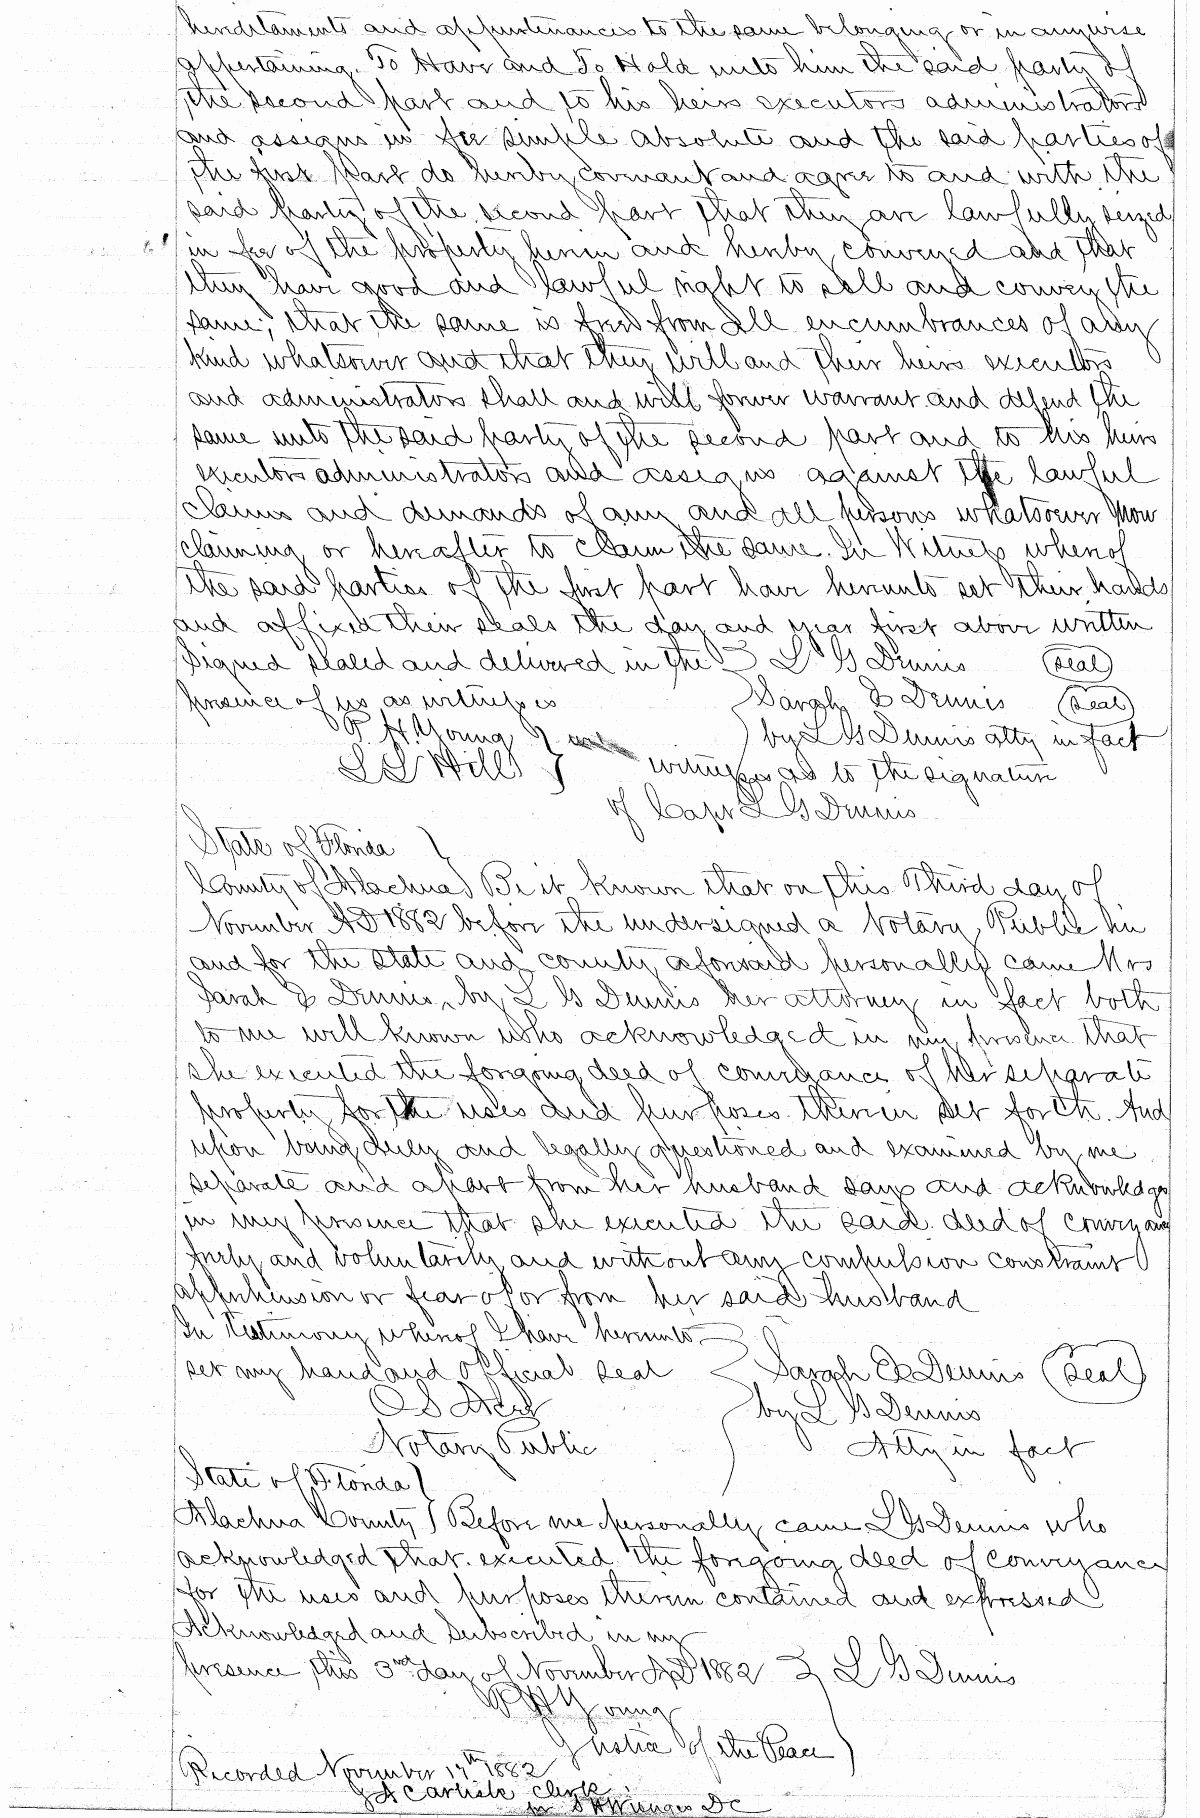 hereditaments and appurtenances to the same belonging or in anywise
appertaining. To Have and To Hold unto him the said party of
the second part and to his heirs executors administrators
and assigns in fee simple absolute and the said parties of
the first part do hereby covenant and agree to and with the
said party of the second part that they are lawfully seized
in fee of the property herein and hereby conveyed and that
they have good and lawful right to sell and convey the
same; that the same is free from all encumbrances of any
kind whatsoever and that they will and their heirs executors
and administrators shall and will forever warrant and defend the
same unto the said party of the second part and to his heirs
executors administrators and assigns against the lawful
claims and demands of any and all persons whatsoever now
claiming or hereafter to claim the same. In Witness whereof
the said parties of the first part have hereunto set their hands
and affixed their seals the day and year first above written
Signed sealed and delivered in the L G Dennis (seal)
presence of us as witnesses Sarah E Dennis (seal)
P. H. Young by L G Dennis atty in fact
L L Hill witnesses as to the signature
of Capt L G Dennis
State of Florida
County of Alachua Be it known that on this Third day of
November AD 1882 before the undersigned a Notary Public in
and for the state and county aforesaid personally came Mrs
Sarah E Dennis, by L G Dennis her attorney in fact both
to me well known who acknowledged in my presence that
she executed the forgoing deed of conveyance of her separate
property for the uses and purposes therein set forth. And
upon being duly and legally questioned and examined by me
separate and apart from her husband says and acknowledges
in my presence that she executed the said deed of conveyance
freely and voluntarily and without any compulsion constraint
apprehension or fear of or from her said husband
In Testimony whereof I have hereunto
set my hand and official seal Sarah E Dennis (seal)
O S by L G Dennis
Notary Public Atty in fact
State of Florida
Alachua County Before me personally came L G Dennis who
acknowledged that executed the forgoing deed of conveyance
for the uses and purposes therein contained and expressed
Acknowledged and Subscribed in my
presence this 3rd day of November AD 1882 L G Dennis
P H Young
Justice of the Peace
Recorded November 17th 1882
J A Carlisle Clerk
DC